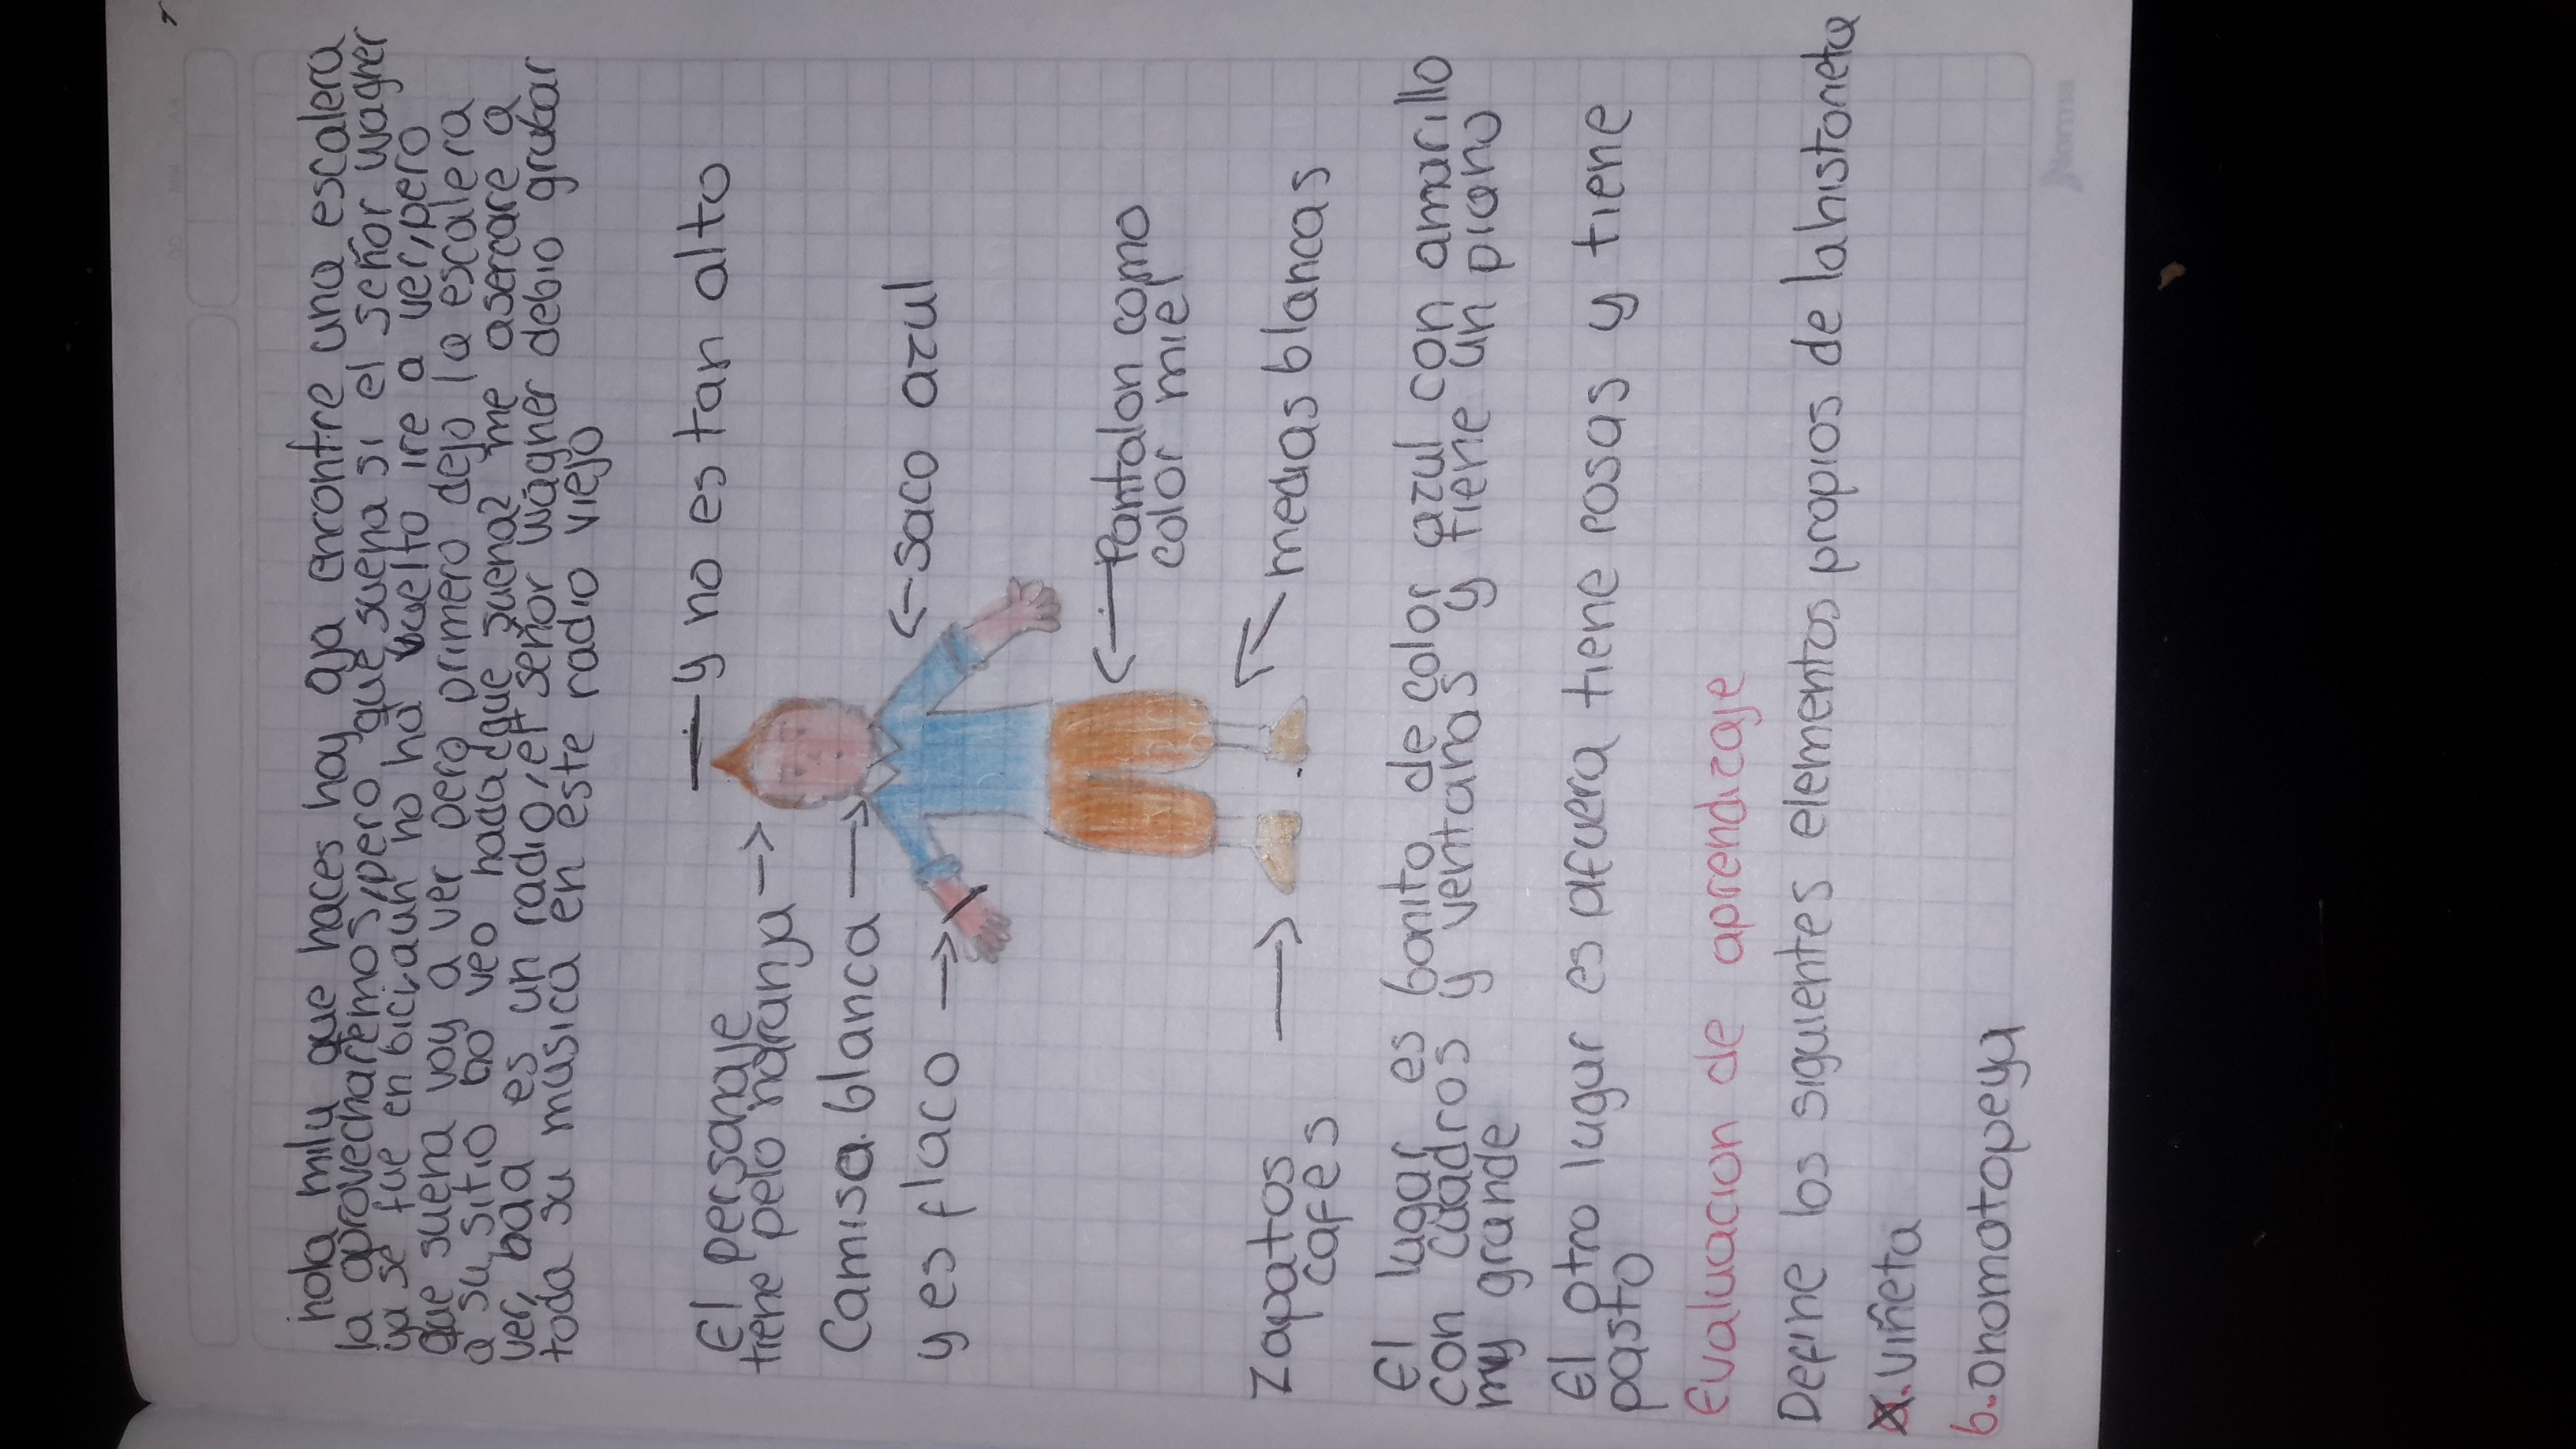 hola milu que haces hoy aja encontre una escalera
la aprovecharemos, pero que suena si el señor wagner
ya se fue en bici aun no ha vuelto ire a ver, pero
que suena voy a ver pero primero dejo la escalera
a su sitio no veo nada que suena? me asercare a
ver, baa es un radio, el señor wagner debio grabar
toda su musica en este radio viejo
y no es tan alto
El personaje
tiene pelo naranja
Camisa blanca
saco azul
y es flaco
Pantalon como
color miel
Zapatos
cafes
medias blancas
El lugar es bonito de color azul con amarillo
con cuadros y ventanas y tiene un piano
muy grande
El otro lugar es afuera tiene rosas y tiene
pasto
Evaluacion de aprendizaje
Define los siguientes elementos propios de la historieta
a. viñeta
b. onomatopeya
Norma